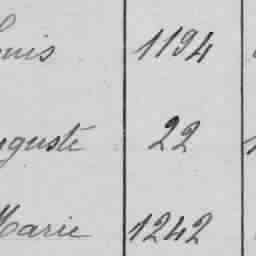 Louis 1194
Auguste 22
Marie 1242